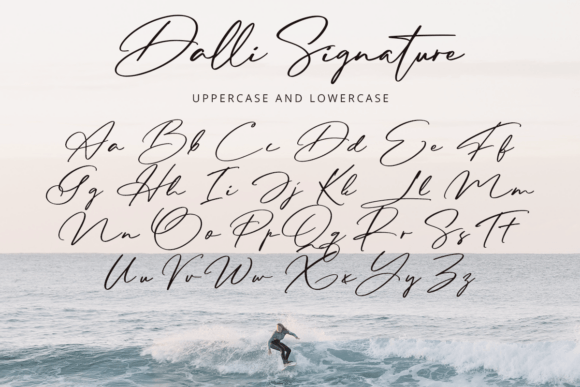 Dalli Signature
UPPERCASE AND LOWERCASE
Aa Bb Cc Dd Ee Ff
Gg Hh Ii Jj Kk Ll Mm
Nn Oo Pp Qq Rr Ss Tt
Uu Vv Ww Xx Yy Zz